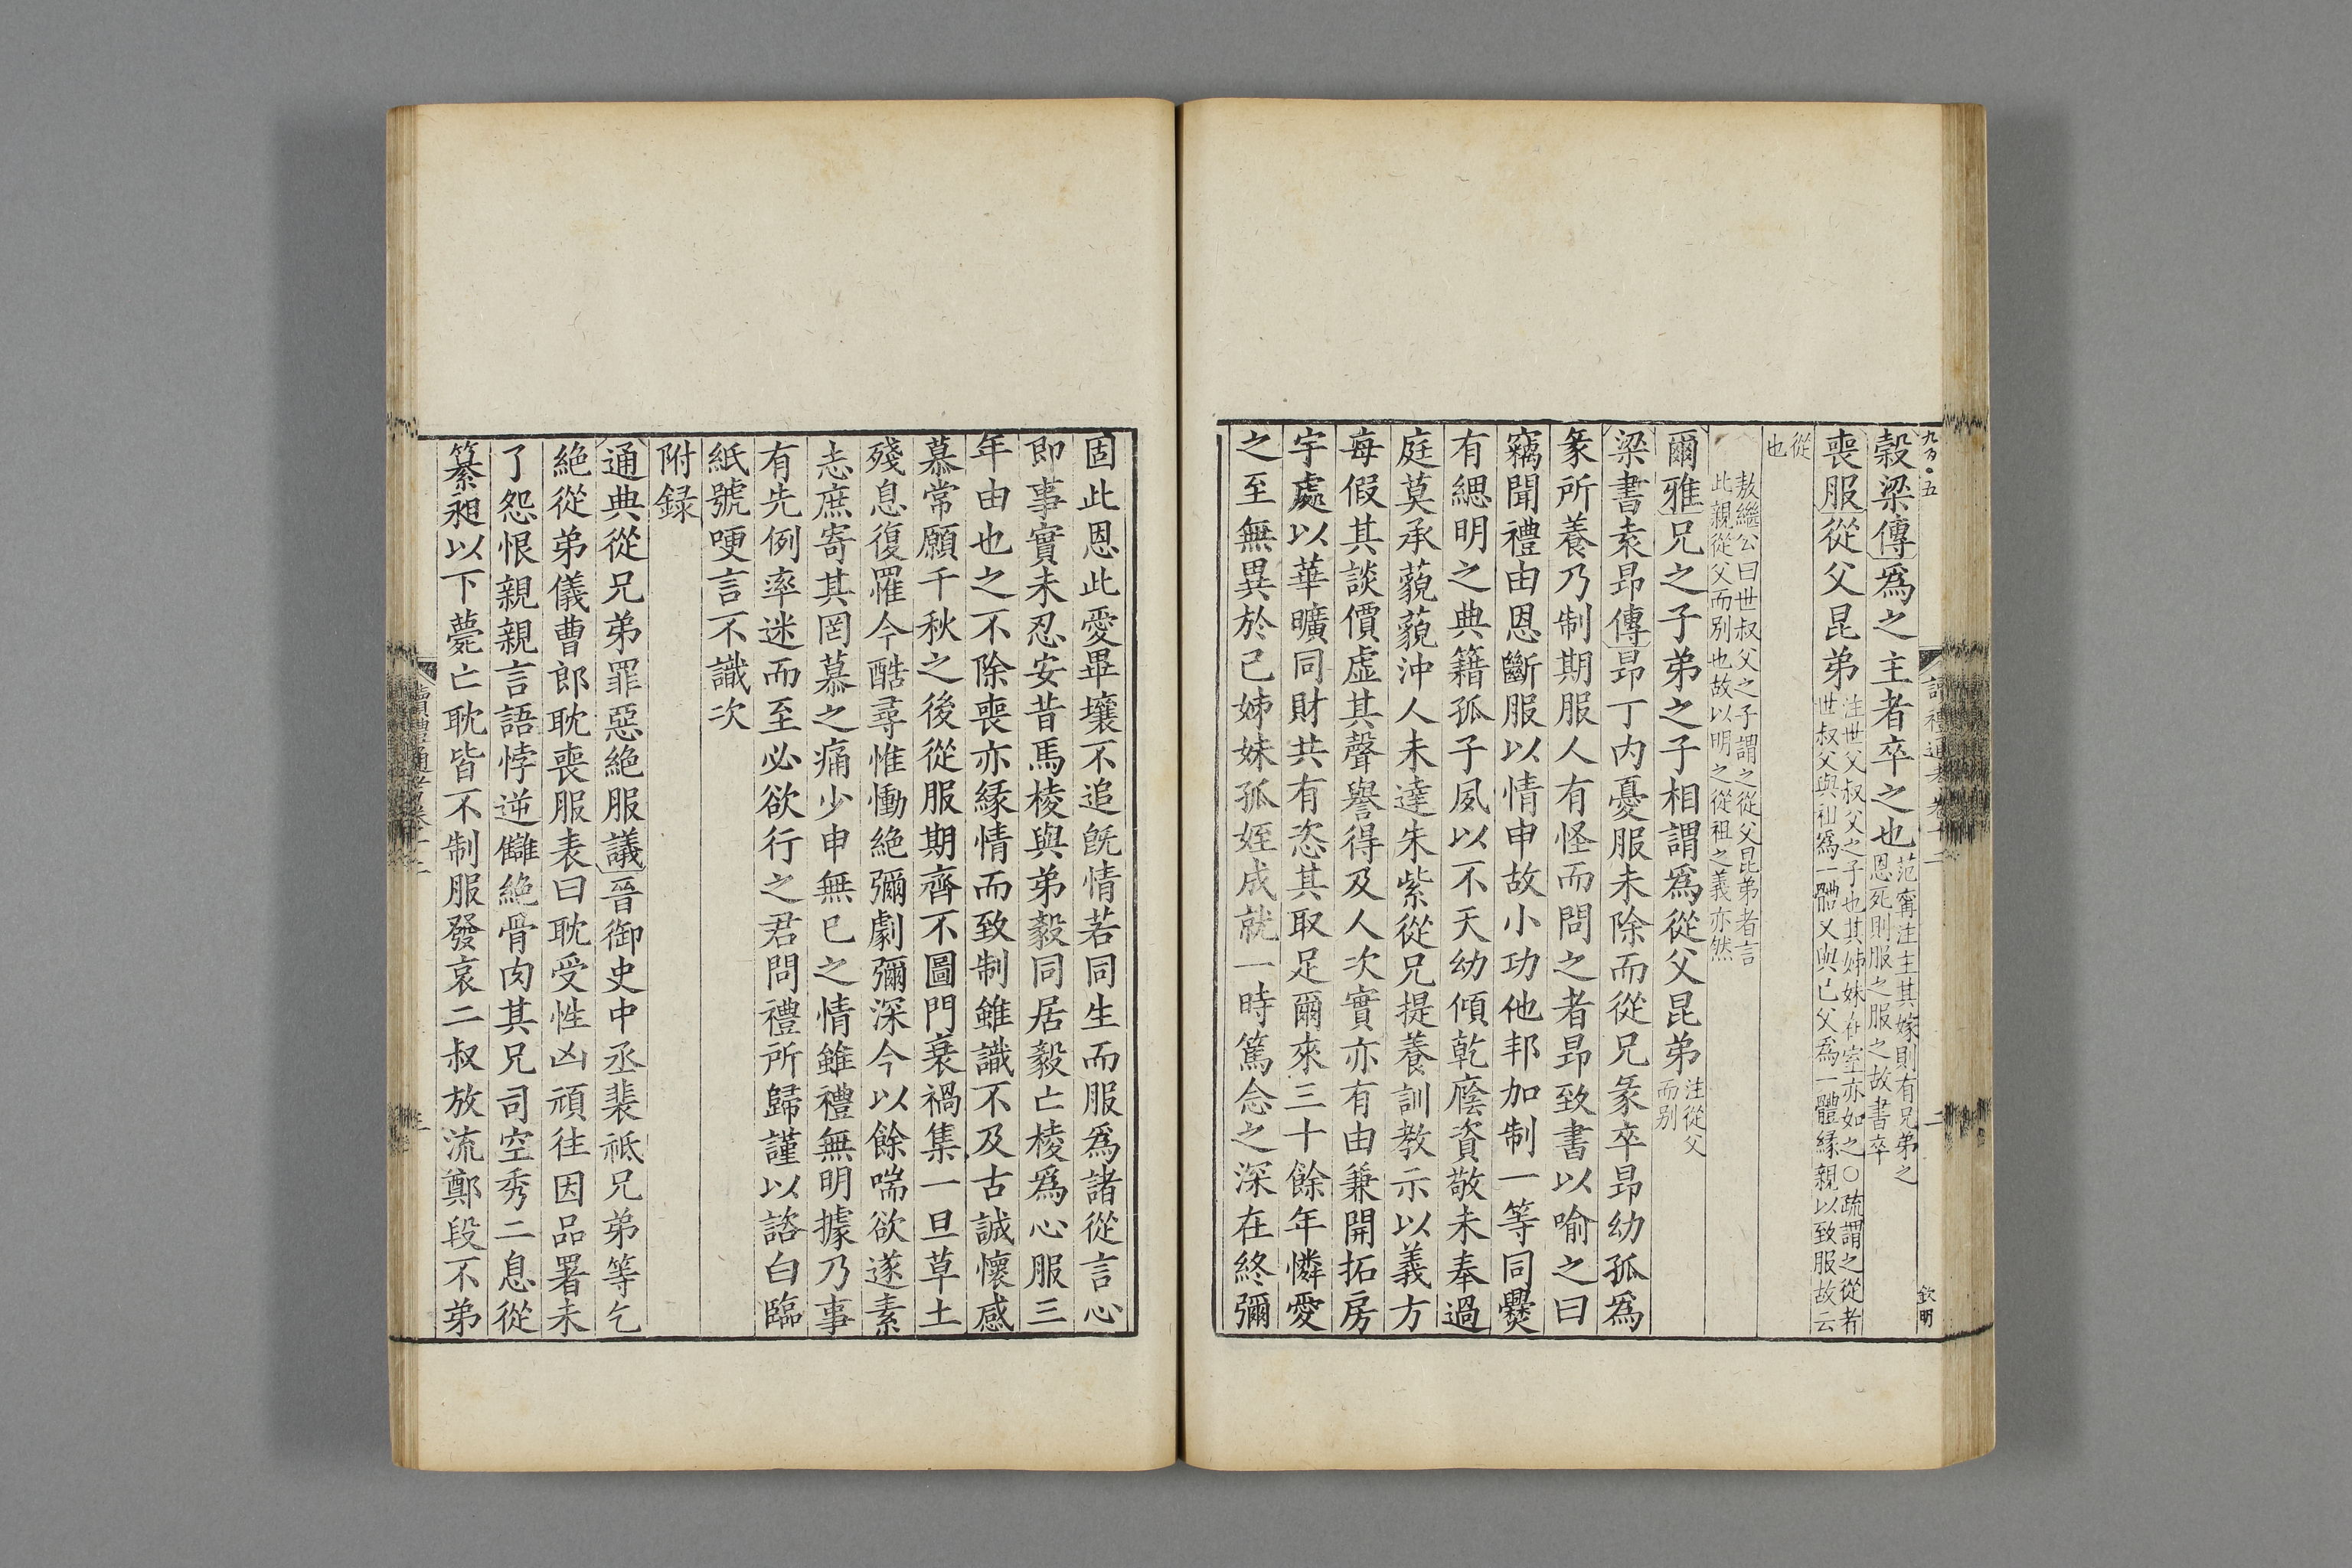 穀梁傳爲之主者卒之也范甯注主其嫁則有兄弟之恩死則服之服之故書卒
喪服從父昆弟注世父叔父之子也其姊妹在室亦如之○疏謂之從者世叔父與祖爲一體又與己父爲一體緣親以致服故云
從也
敖繼公曰世叔父之子謂之從父昆弟者言此親從父而別也故以明之從祖之義亦然
爾雅兄之子弟之子相謂爲從父昆弟注從父而别
梁書袁昂傳昂丁内憂服未除而從兄彖卒昂幼孤爲
彖所養乃制期服人有怪而問之者昂致書以喻之曰
竊聞禮由恩斷服以情申故小功他邦加制一等同爨
有緦明之典籍孤子夙以不天幼傾乾廕資敬未奉過
庭莫承藐藐沖人未達朱紫從兄提養訓教示以義方
每假其談價虛其聲譽得及人次實亦有由兼開拓房
宇處以華曠同財共有恣其取足爾來三十餘年憐愛
之至無異於己姊妹孤姪成就一時篤念之深在終彌
固此恩此愛畢壤不追旣情若同生而服爲諸從言心
即事實未忍安昔馬棱與弟毅同居毅亡棱爲心服三
年由也之不除喪亦緣情而致制雖識不及古誠懷感
慕常願千秋之後從服期齊不圖門衰禍集一旦草土
殘息復罹今酷尋惟慟絶彌劇彌深今以餘喘欲遂素
志庶寄其罔慕之痛少申無已之情雖禮無明據乃事
有先例率迷而至必欲行之君問禮所歸謹以諮白臨
紙號哽言不識次
附録
通典從兄弟罪惡絶服議晉御史中丞裴祗兄弟等乞
絶從弟儀曹郎耽喪服表曰耽受性凶頑往因品署未
了怨恨親親言語悖逆讎絶骨肉其兄司空秀二息從
纂昶以下薨亡耽皆不制服發哀二叔放流鄭段不弟
讀禮通考卷十二
二
欽明
九百〇五